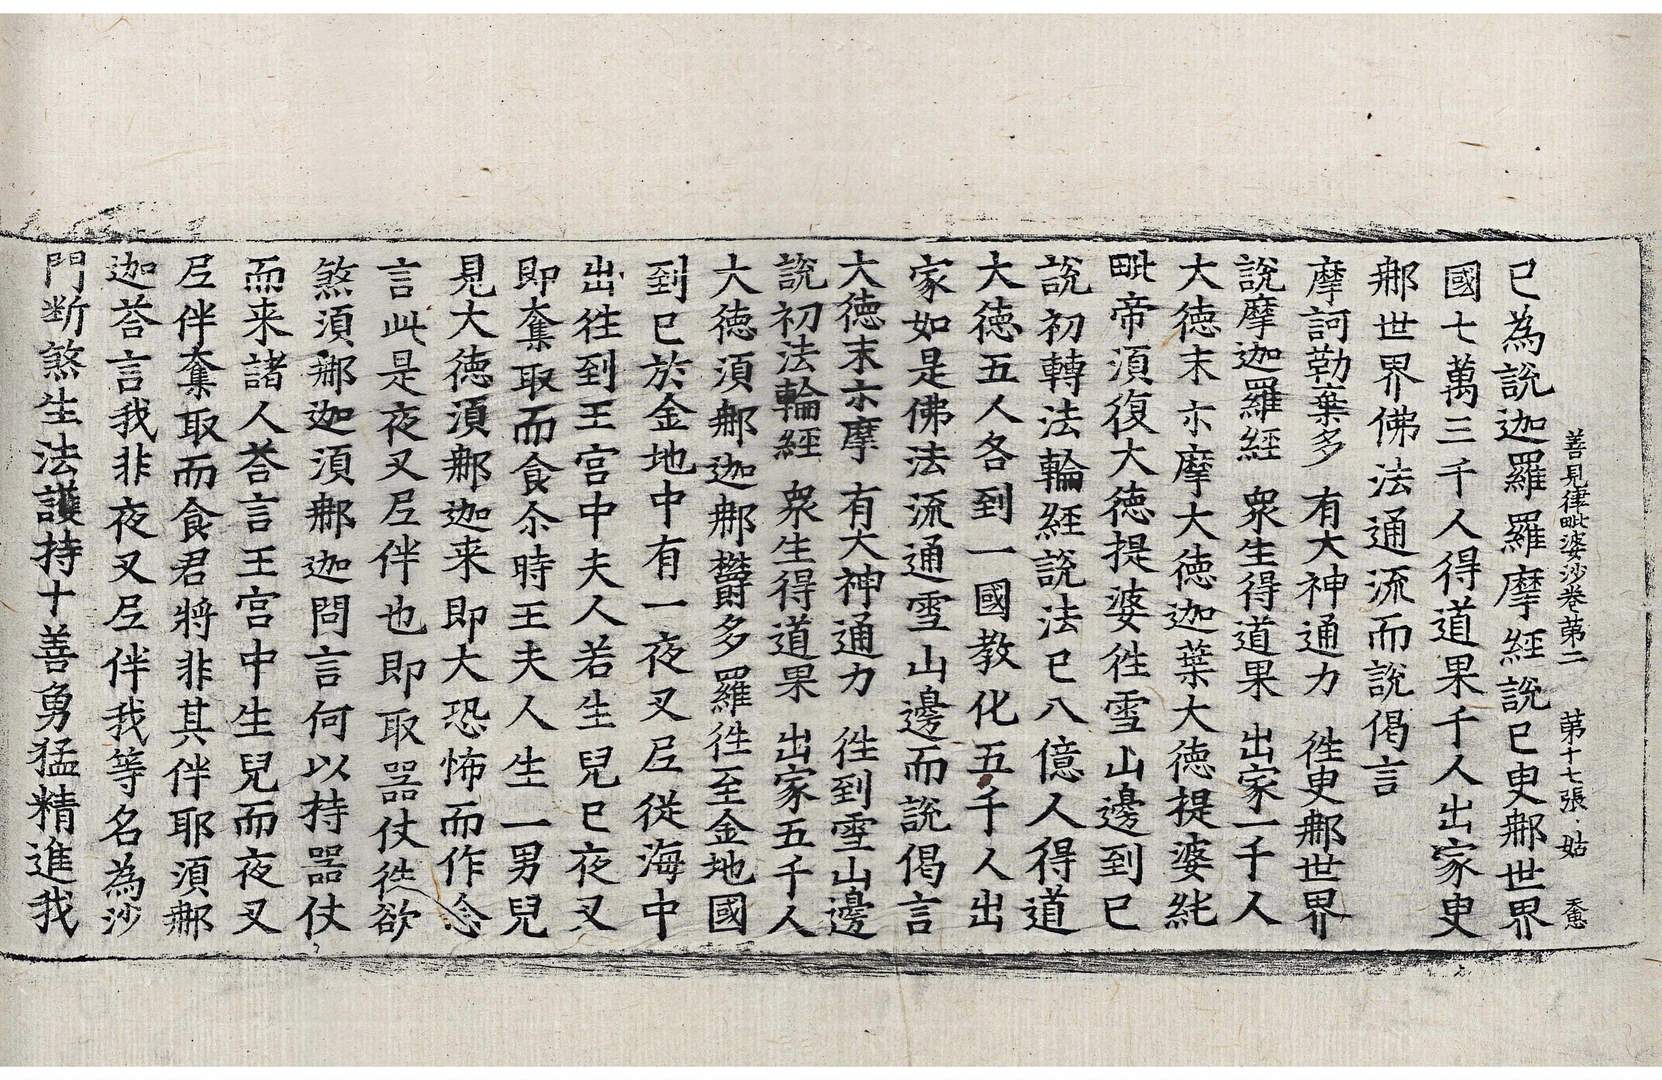 善見律毗婆沙卷第二 第十七張 姑
已為說迦羅羅摩經說已臾那世界
國七萬三千人得道果千人出家臾
那世界佛法通流而說偈言
摩訶勒棄多 有大神通力 徃臾那世界
說摩迦羅經 衆生得道果 出家一千人
大德末示摩大德迦葉大德提婆純
毗帝須復大德提婆徃雪山邊到已
說初轉法輪經說法已八億人得道
大德五人各到一國教化五千人出
家如是佛法流通雪山邊而說偈言
大德末示摩 有大神通力 徃到雪山邊
說初法輪經 衆生得道果 出家五千人
大德須那迦那欝多羅徃至金地國
到已於金地中有一夜叉尼從海中
出徃到王宮中夫人若生兒已夜叉
即奪取而食尒時王夫人生一男兒
見大德須那迦来即大恐怖而作念
言此是夜叉尼伴也即取器仗徃欲
煞須那迦須那迦問言何以持器仗
而来諸人荅言王宮中生兒而夜叉
尼伴奪取而食君將非其伴耶須那
迦荅言我非夜叉尼伴我等名為沙
門断煞生法護持十善勇猛精進我